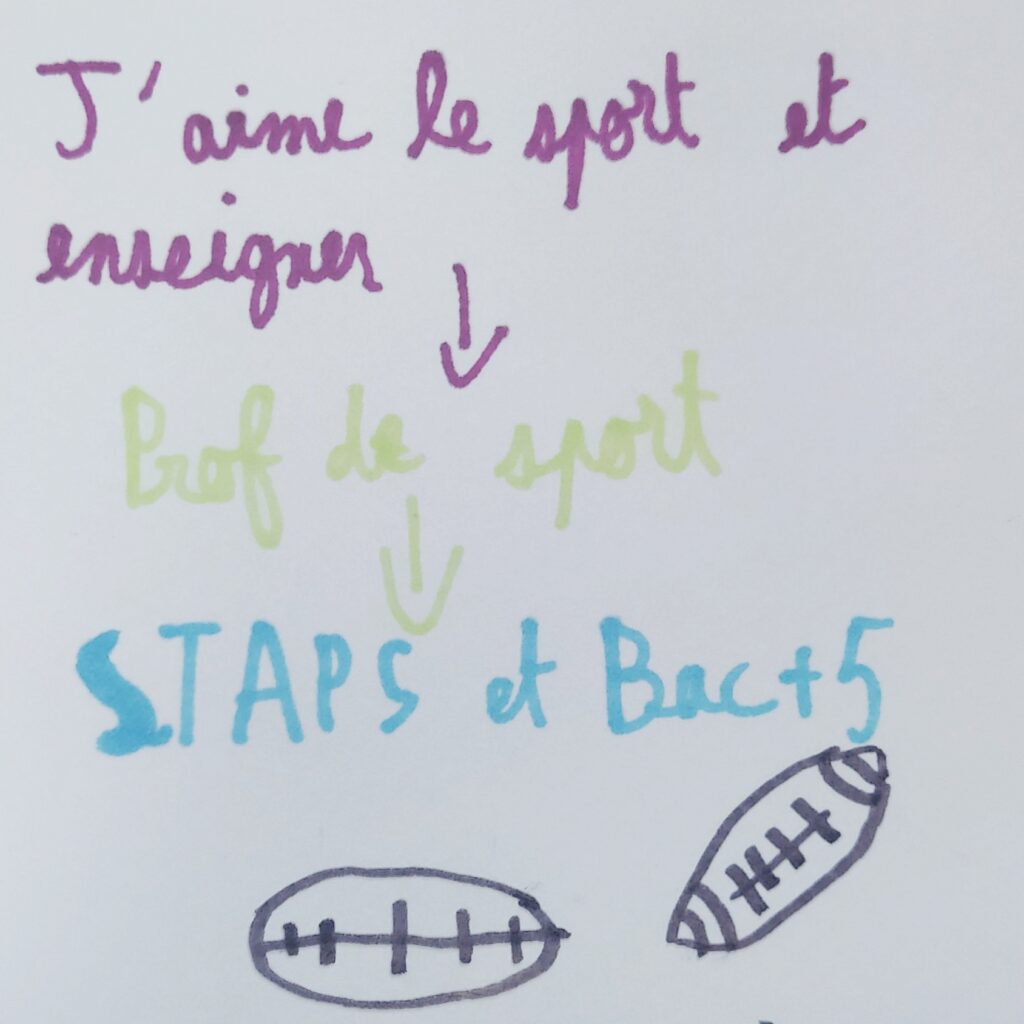 J'aime le sport et
enseigner
Prof de sport
STAPS et Bac+5